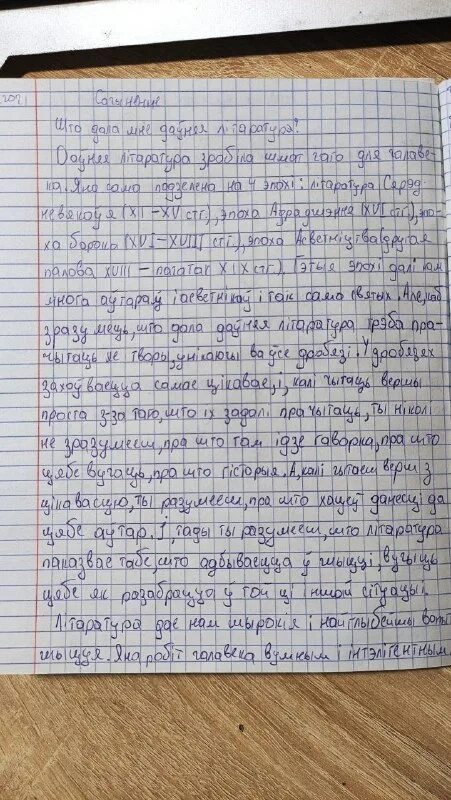 Сочинение
Што дала мне даўняя літаратура?
Даўняя літаратура зрабіла шмат чаго для чалаве-
ка. Яна сама падзелена на 4 эпохі: літаратура Сярэд-
невякоўя (XI-XV стг.), эпоха Адраджэння (XVI стг.), эпо-
ха барока (XVI-XVIII стг.), эпоха Асветніцтва (другая
палова XVIII - пачатак XIX стг.). Гэтыя эпохі далі нам
многа аўтараў і асветнікаў і так сама святых. Але, каб
зразумець, што дала даўняя літаратура трэба пра-
чытаць яе творы, унікаючы ва ўсе дробязі. У дробязях
захоўваецца самае цікавае, і, калі чытаць вершы
проста з-за таго, што іх задалі прачытаць, ты ніколі
не зразумееш, пра што там ідзе гаворка, пра што
цябе вучаць, пра што гісторыя. А, калі чытаеш верш з
цікавасцю, ты разумееш, пра што хацеў данесці да
цябе аўтар. І, тады ты разумееш, што літаратура
паказвае табе, што адбываецца ў жыцці, вучыць
цябе як разабрацца ў той ці іншай сітуацыі.
Літаратура дае нам шырокія і найглыбейшы
жыцця. Яна робіт чалавека вумным і інтэлігентным.